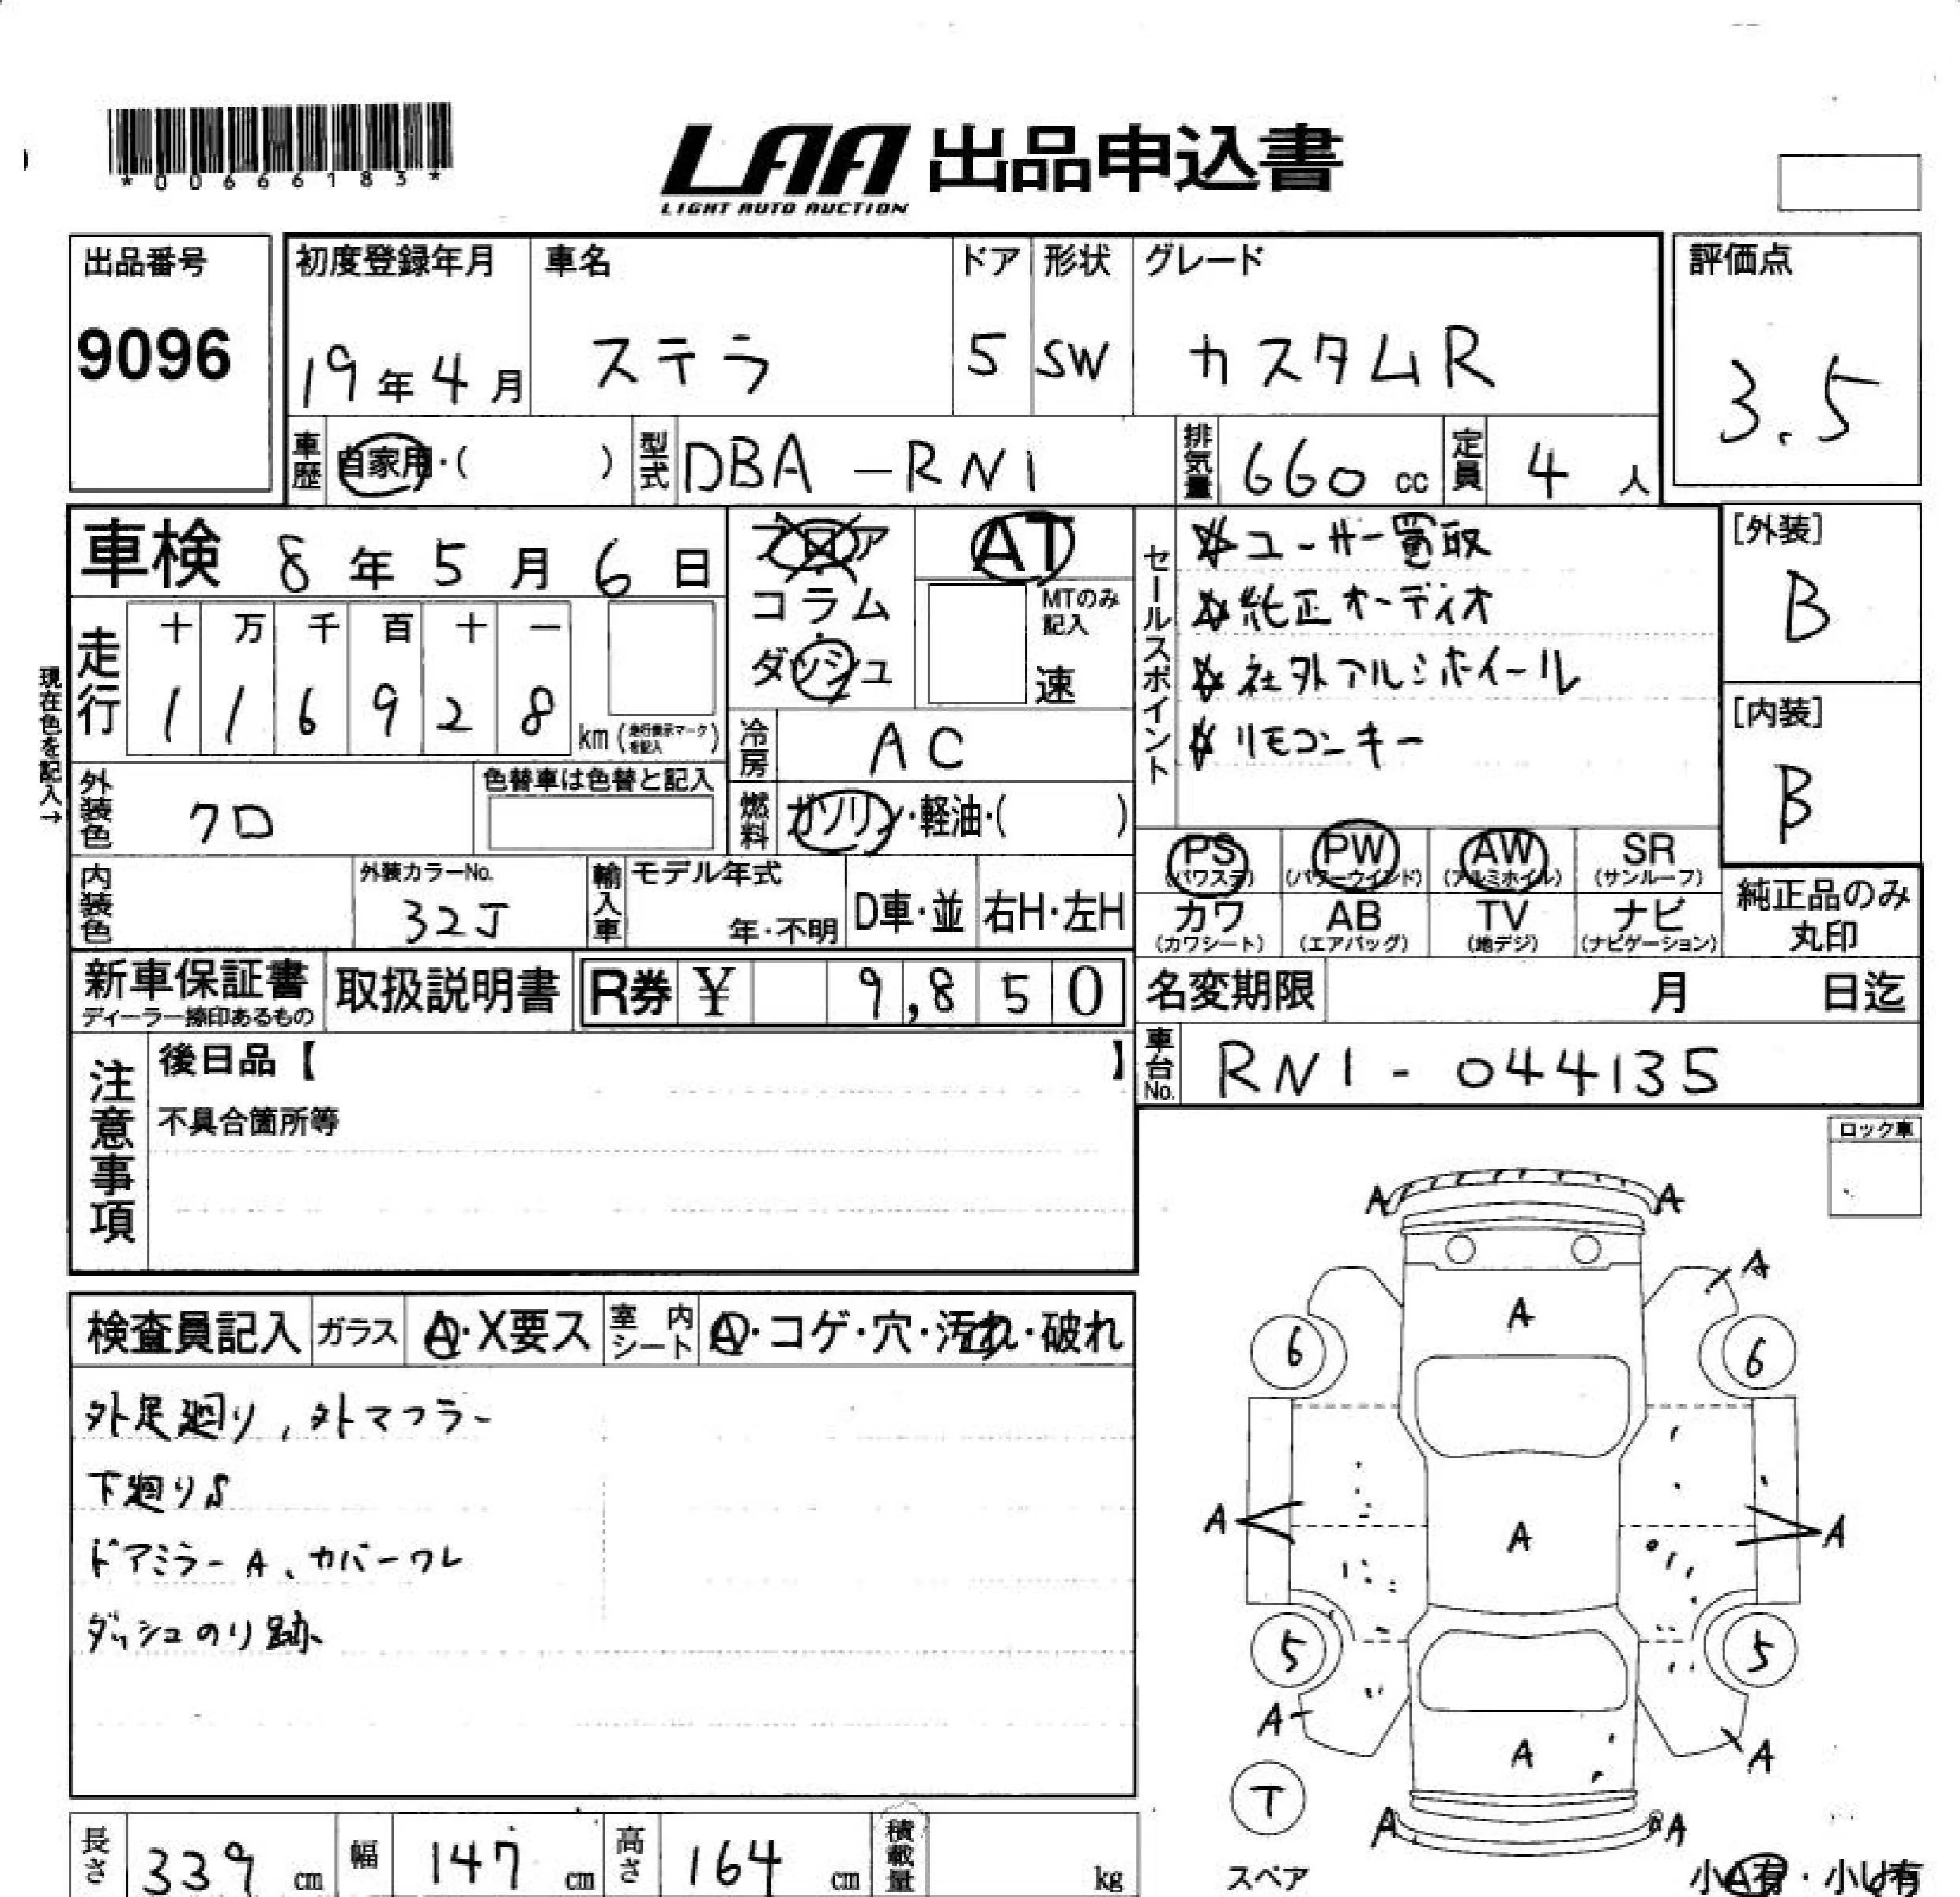 *00666183*
LAA 出品申込書
LIGHT AUTO AUCTION
出品番号
9096
初度登録年月
19年4月
車名
ステラ
ドア
5
形状
SW
グレード
カスタムR
評価点
3.5
車歴
自家用・( )
型式
DBA-RN1
排気量
660 cc
定員
4 人
車検 8年5月6日
フロア
コラム
ダッシュ
AT
MTのみ
記入
速
セールスポイント
☆ユーザー買取
☆純正オーディオ
☆社外アルミホイール
☆リモコンキー
[外装]
B
[内装]
B
現在色を記入→
走行
十 万 千 百 十 一
1 1 6 9 2 8
km (走行表示マークを記入)
冷房
AC
外装色
クロ
色替車は色替と記入
燃料
ガソリン・軽油・( )
PS
(パワステ)
PW
(パワーウインド)
AW
(アルミホイル)
SR
(サンルーフ)
カワ
(カワシート)
AB
(エアバッグ)
TV
(地デジ)
ナビ
(ナビゲーション)
純正品のみ
丸印
内装色
外装カラーNo.
32J
輸入車
モデル年式
年・不明
D車・並
右H・左H
新車保証書
ディーラー捺印あるもの
取扱説明書
R券 ¥ 9,850
名変期限 月 日迄
車台No.
RN1-044135
注意事項
後日品【 】
不具合箇所等
ロック車
検査員記入
ガラス
A・X要ス
室内シート
A・コゲ・穴・汚れ・破れ
外足廻り、外マフラー
下廻りS
ドアミラーA、カバーワレ
ダッシュのり跡
A A
A
A
6 6
A A A
5 5
A
A
A
T
A A
スペア
小A有・小U有
長さ
339 cm
幅
147 cm
高さ
164 cm
積載量
kg